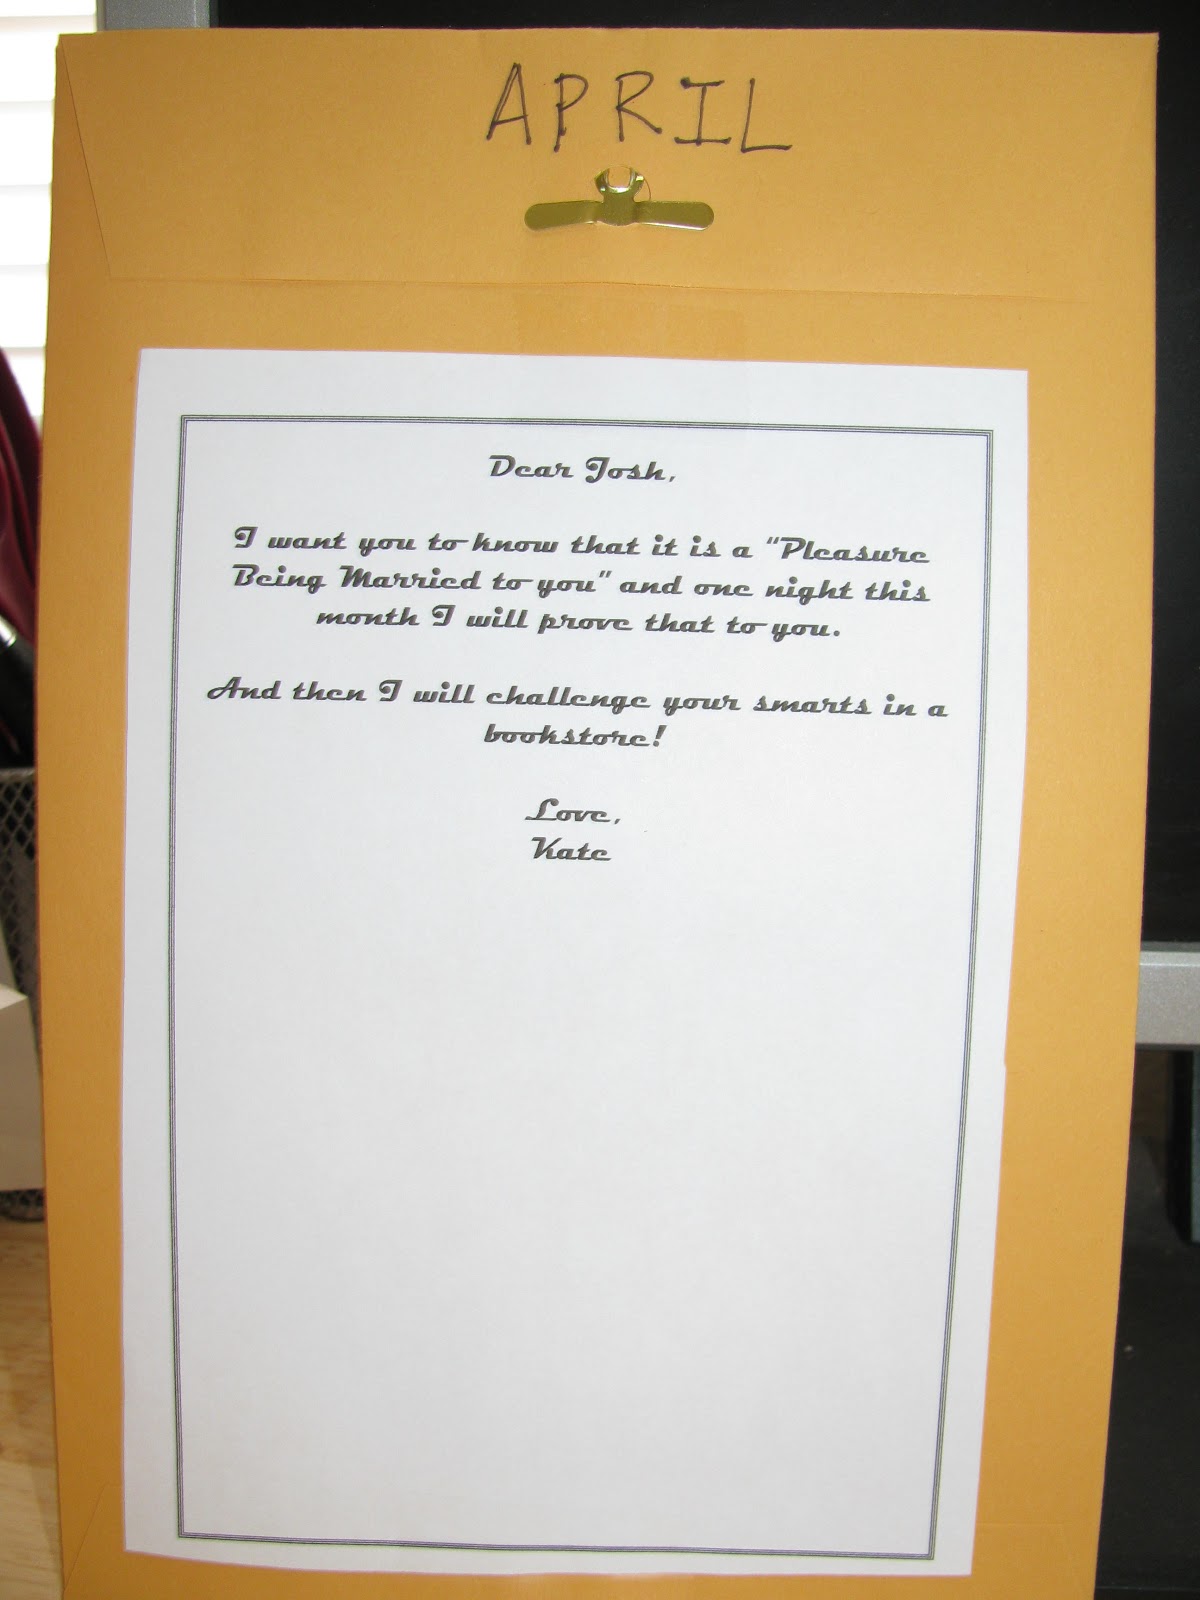 APRIL
Dear Josh,
I want you to know that it is a "Pleasure
Being Married to you" and one night this
month I will prove that to you.
And then I will challenge your smarts in a
bookstore!
Love,
Kate